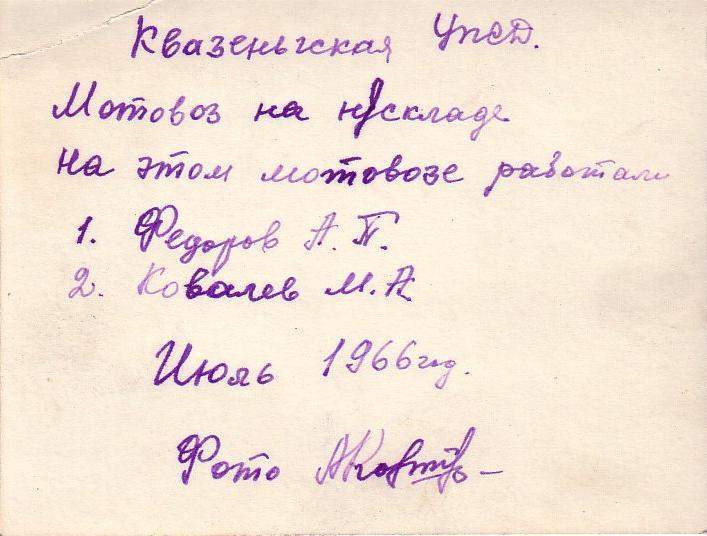 Квазеньгская УЖД.
Мотовоз на н/складе
на этом мотовозе работали
1. Федоров А.П.
2. Ковалев М.А
Июль 1966 год.
Фото